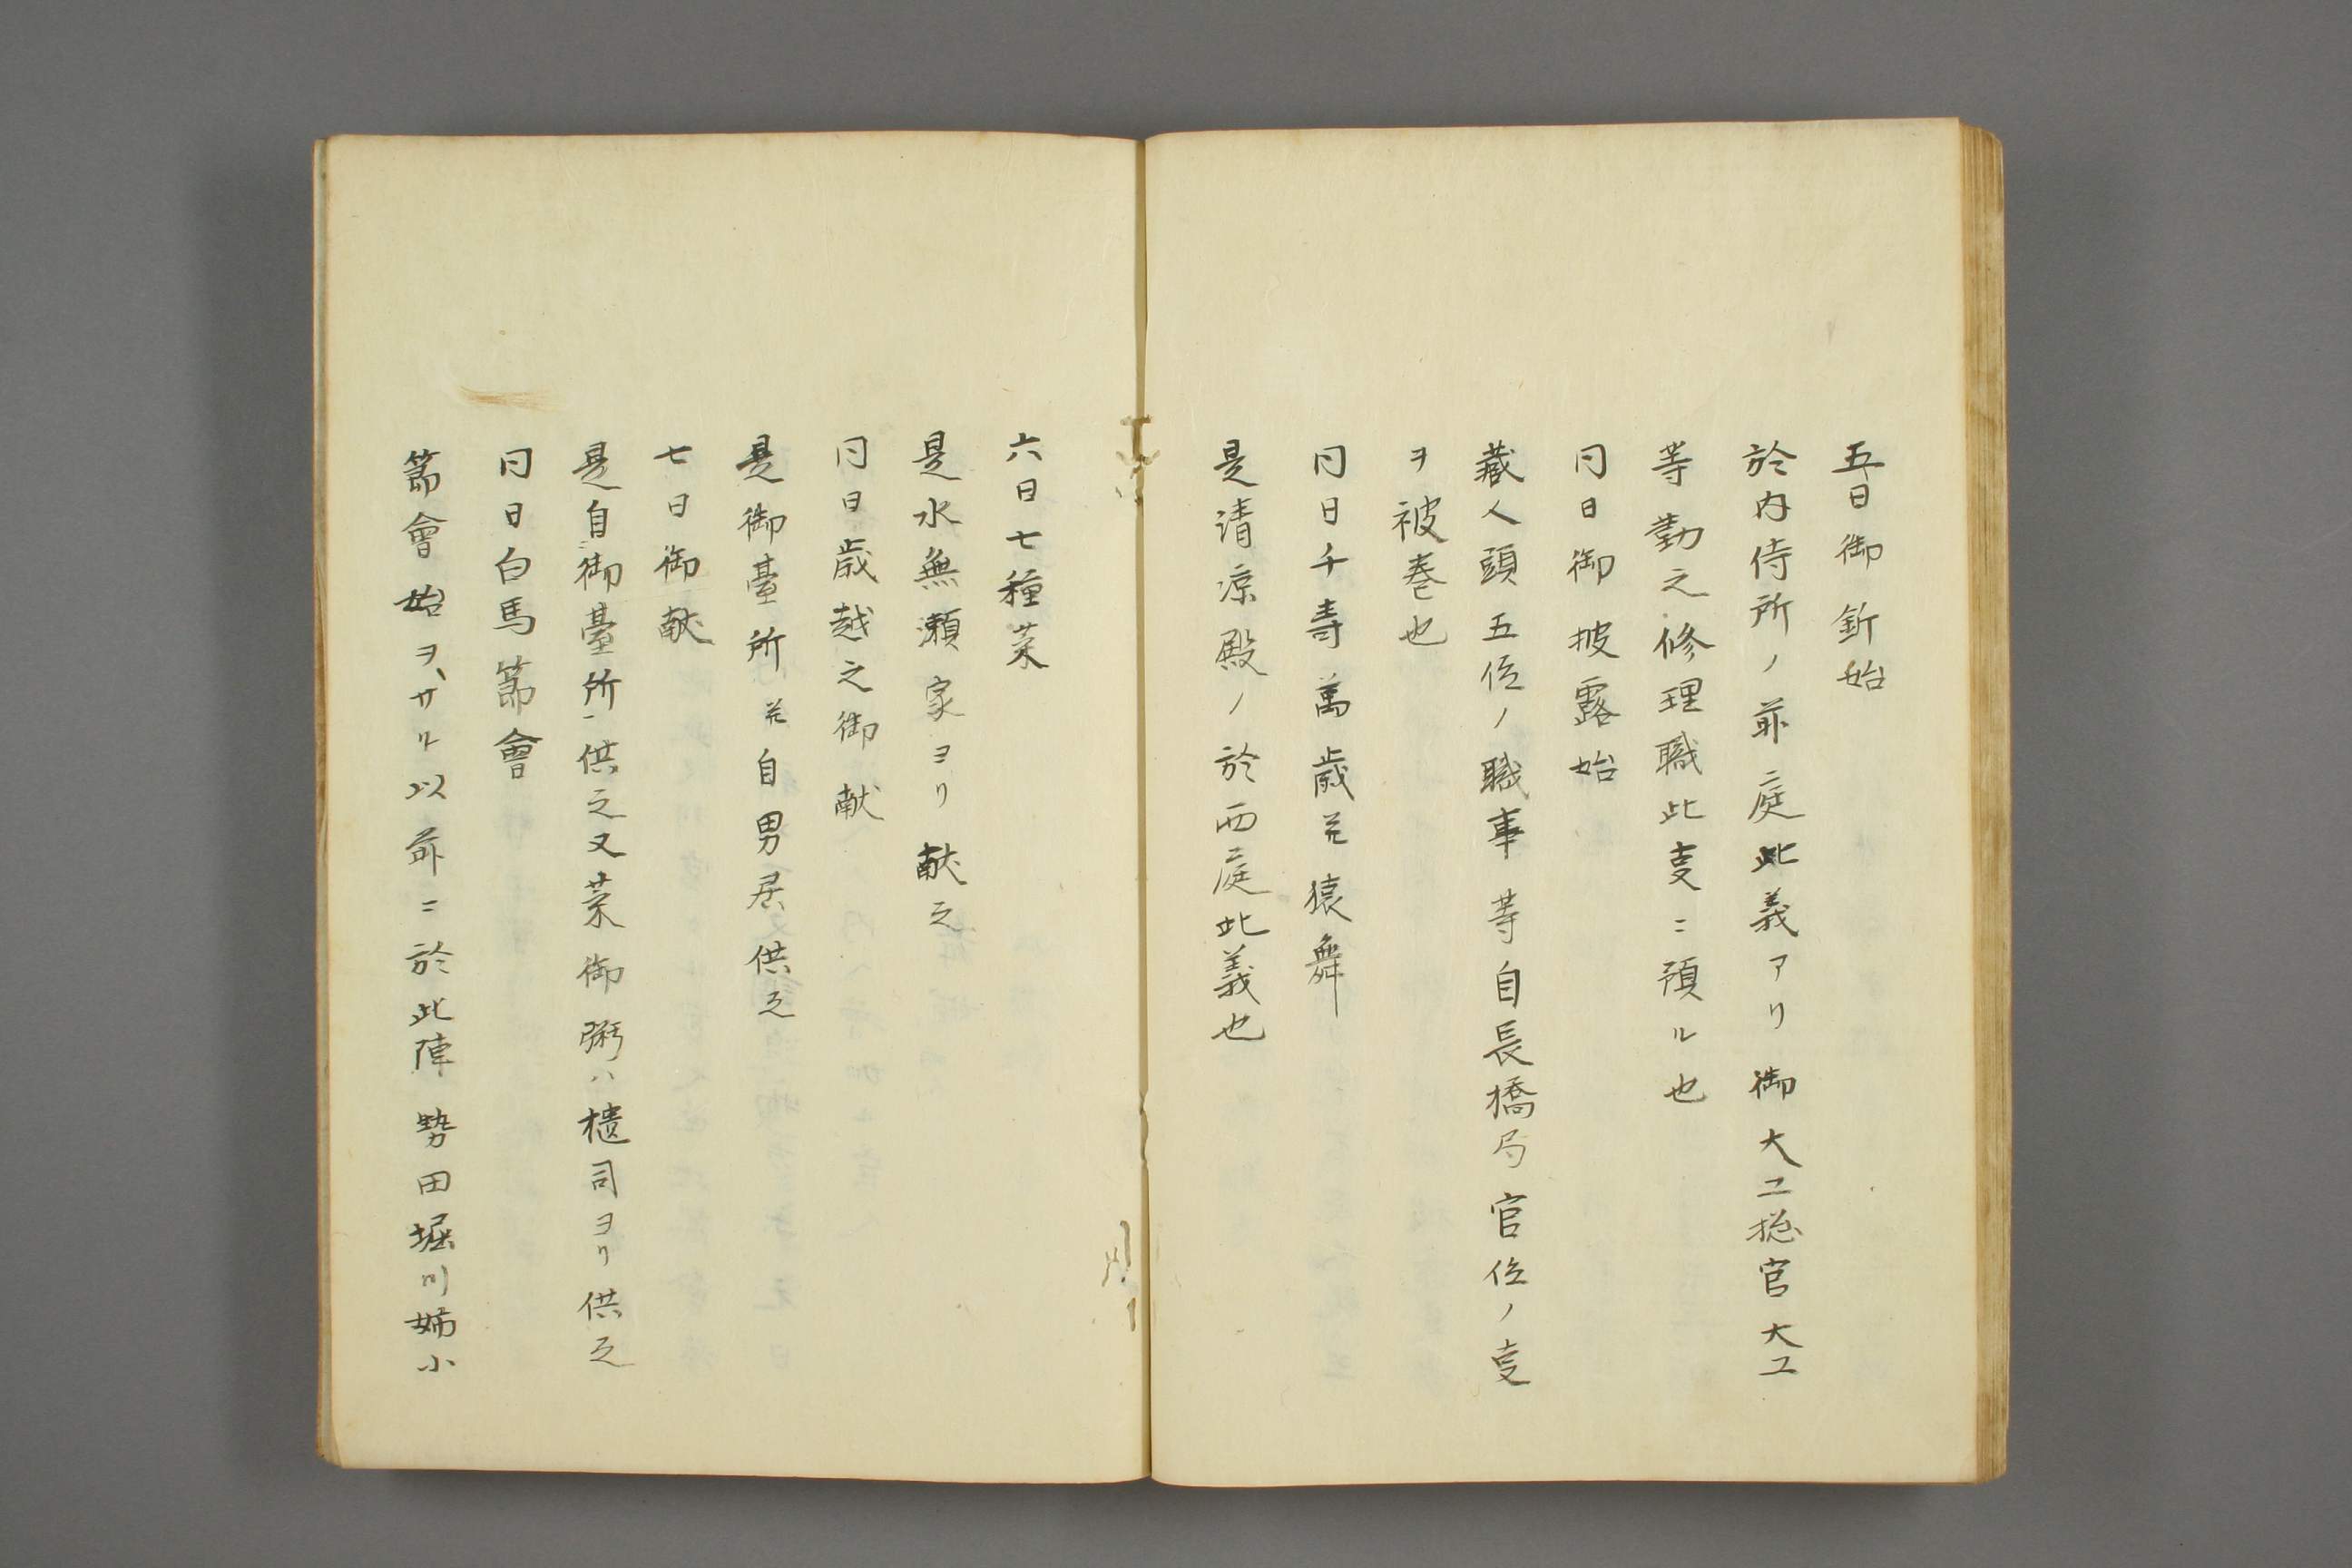 五日御釿始
於内侍所ノ前庭此義アリ御大工捴官大工
等勤之修理職此叓ニ預ル也
同日御披露始
蔵人頭五位ノ職事等自長橋局官位ノ叓
ヲ被巻也
同日千壽萬歳并猿舞
是清凉殿ノ於西庭此義也
六日七種菜
是水無瀬家ヨリ献之
同日歳越之御献
是御臺所并自男居供之
七日御献
是自御臺所供之又菜御粥ハ樻司ヨリ供之
同日白馬節會
節會始ヲヽサル以前ニ於此陣勢田堀川姉小